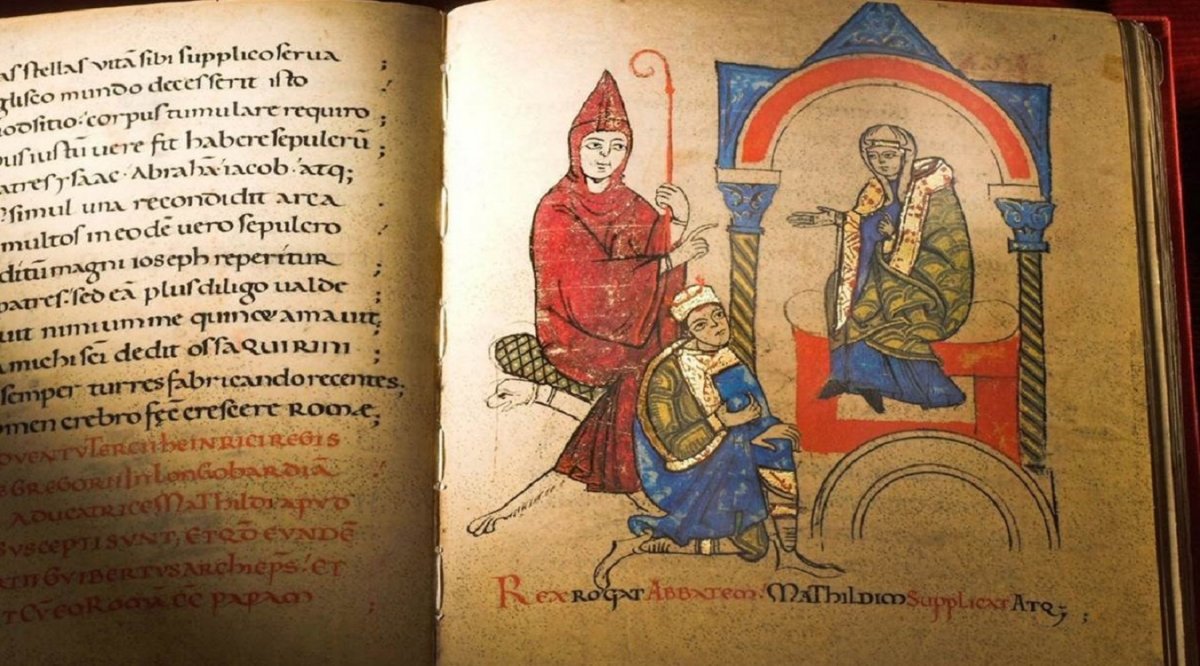 as stellas vitā sibi supplico serua ;
gliseo mundo decesserit isto ;
corpus tumulare requiro ;
us iustū uere fit habere sepulcrū ;
atres ysaac. Abrahā iacob. atq;
simul una recondidit arca .
multos in eodē uero sepulcro
ditū magni ioseph reperitur ;
patres. sed eā plus diligo ualde ;
uit nimium me amauit;
michi sci dedit ossa QUIRINI ;
semper turres fabricando recentes;
men crebro fec crescere ROMÆ;
DVENTV TERCII HEINRICI REGIS
GREGORII IN LONGOBARDIĀ
ADVCATRICE MATHILDI APVD
SVSCEPTI SVNT, ET QD EVNDĒ
GVIBERTVS ARCHIEPS. ET
T CV EO ROMA PAPAM ;
REX ROGAT ABBATEM. MATHILDIM SUPPLICAT ATQ; ;